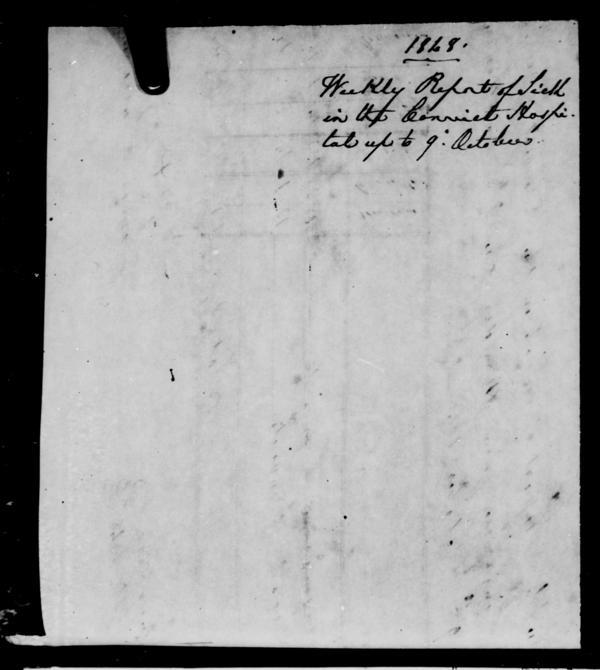 1868.
Weekly Report of Sick
in the Convict Hospi-
tal up to 9. October.